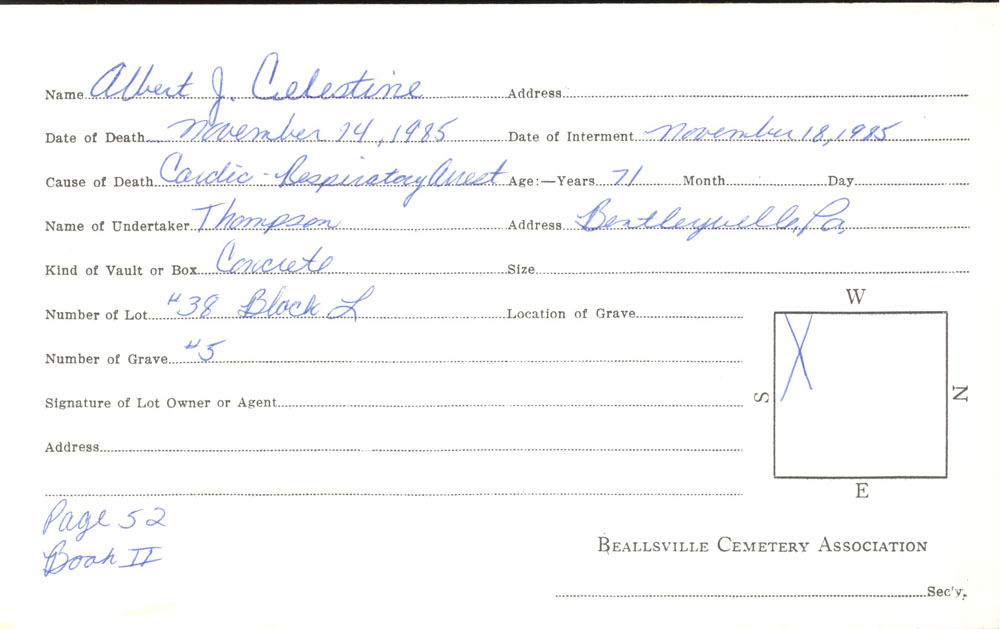 Name Albert J. Celestine Address
Date of Death November 14, 1985 Date of Interment November 18, 1985
Cause of Death Cardic - Respiratory Arrest Age:—Years 71 Month Day
Name of Undertaker Thompson Address Bentleyville, Pa.
Kind of Vault or Box Concrete Size
Number of Lot #38 Block L Location of Grave
W
Number of Grave #5
S N
Signature of Lot Owner or Agent
Address
E
Page 52
Book II
BEALLSVILLE CEMETERY ASSOCIATION
Sec'y.